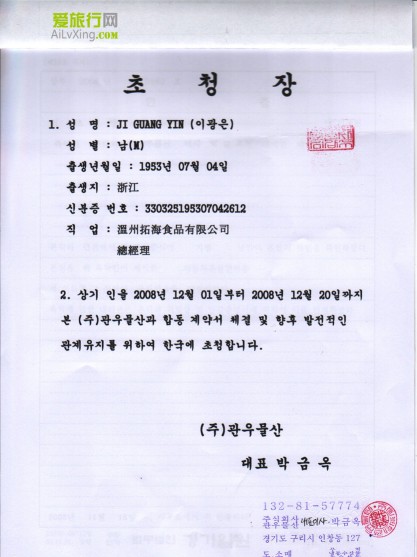 爱旅行网
AiLvXing.com
초 청 장
1. 성 명 : JI GUANG YIN (이광은)
성 별 : 남(M)
출생년월일 : 1953년 07월 04일
출생지 : 浙江
신분증 번호 : 330325195307042612
직 업 : 溫州拓海食品有限公司
總經理
2. 상기 인을 2008년 12월 01일부터 2008년 12월 20일까지
본 (주)관우물산과 합동 계약서 체결 및 향후 발전적인
관계유지를 위하여 한국에 초청합니다.
(주)관우물산
대표 박금옥
132-81-57774
주식회사 대표이사 박금옥
관우물산
경기도 구리시 인창동 127
도 소매